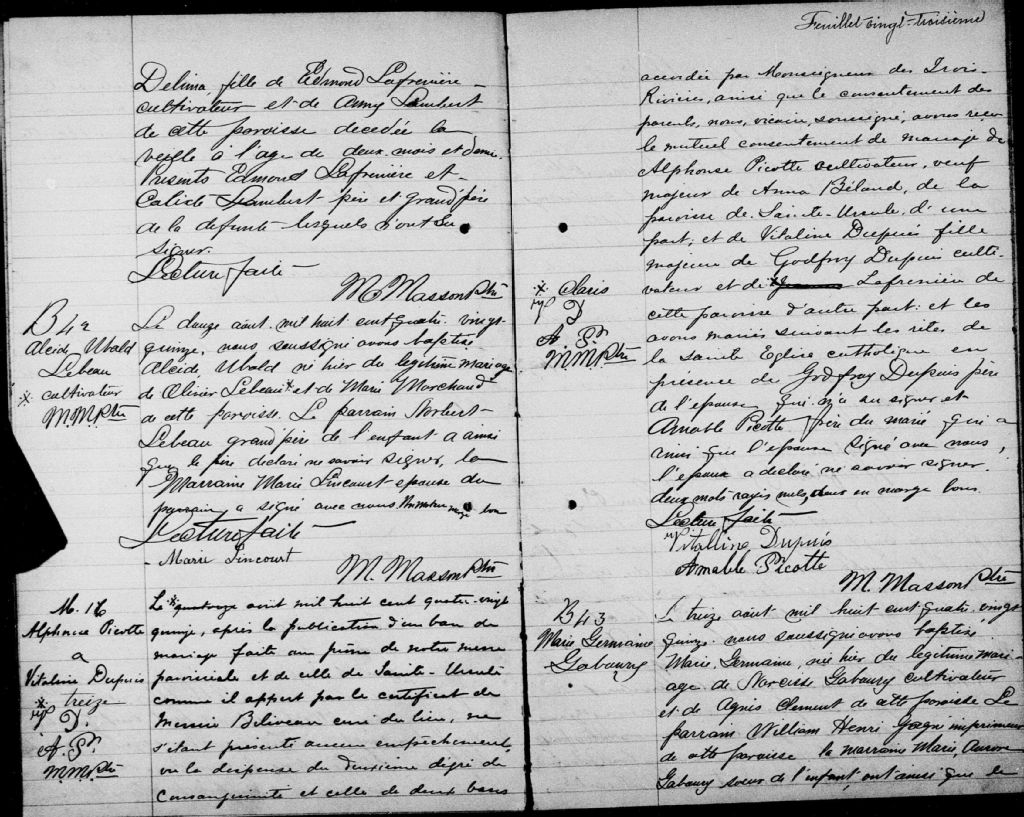 Delima fille de Edmond Lafrenière
cultivateur et de Anny Lambert
de cette paroisse decedée la
veille à l'age de deux mois et demi.
Presents Edmond Lafrenière et
Calixte Lambert père et grand père
de la defunte lesquels n'ont su
signer.
Lecture faite
M. Masson Ptre
B 42
Alcide Ubald
Lebeau
* cultivateur
M.M. Ptre
Le douze aout mil huit cent quatre vingt-
quinze, nous soussigné avons baptisé
Alcide, Ubald né hier du legitime mariage
de Olivier Lebeau * et de Marie Marchand
de cette paroisse. Le parrain Norbert
Lebeau grand père de l'enfant a ainsi
que le père declaré ne savoir signer, la
Marraine Marie Lincourt epouse du
parrain a signé avec nous marge bon
Lecture faite
Marie Lincourt
M. Masson Ptre
M. 16
Alphonse Picotte
a
Vitaline Dupuis
* treize
V. D.
A. P.
M.M. Ptre
Le * quatorze août mil huit cent quatre-vingt
quinze, après la publication d'un ban de
mariage faite au prône de notre messe
paroissiale et de celle de Sainte-Ursule
comme il appert par le certificat de
Messire Beliveau curé du lieu, ne
s'étant presenté aucun empêchement,
vu la dispense du deuxième degré de
consanguinité et celle de deux bans
Feuillet vingt-troisième
accordée par Monseigneur des Trois-
Rivières, ainsi que le consentement des
parents, nous, vicaire, soussigné, avons reçu
le mutuel consentement de mariage de
Alphonse Picotte cultivateur, veuf
majeur de Anna Béland, de la
paroisse de Sainte-Ursule, d'une
part; et de Vitaline Dupuis fille
majeure de Godfroy Dupuis culti-
vateur et de * Lafrenière de
cette paroisse d'autre part: et les
avons mariés suivant les rites de
la Sainte Eglise catholique en
présence de Godfroy Dupuis père
de l'épouse qui n'a su signer et
Amable Picotte père du marié qui a
ainsi que l'epouse signé avec nous,
l'époux a declaré ne savoir signer.
deux mots rayés nuls, deux en marge bons.
Lecture faite
* Claris
V. D.
A. P.
M.M. Ptre
Vitalline Dupuis
Amable Picotte
M. Masson Ptre
B 43
Marie Germaine
Gaboury
Le treize aout mil huit cent quatre vingt
quinze nous soussigné avons baptisé
Marie, Germaine, née hier du legitime mari-
age de Narcisse Gaboury cultivateur
et de Agnès Clement de cette paroisse Le
parrain William Henri Gagné imprimeur
de cette paroisse la marraine Marie, Aurore
Gaboury sœur de l'enfant, ont ainsi que le